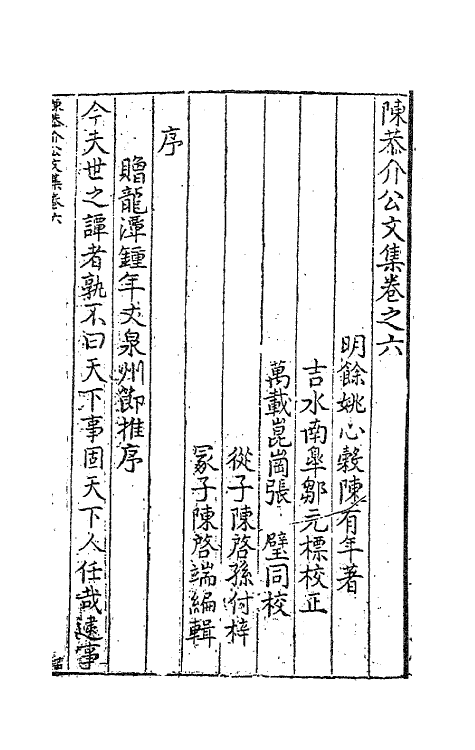 陳恭介公文集卷之六
明餘姚心穀陳有年著
吉水南臯鄒元標校正
萬載崑崗張　璧同校
從子陳啓孫付梓
冢子陳啓端編輯
序
贈龍潭鍾年丈泉州節推序
今夫世之譚者孰不曰天下事固天下人任哉遠事
陳恭介公文集卷六